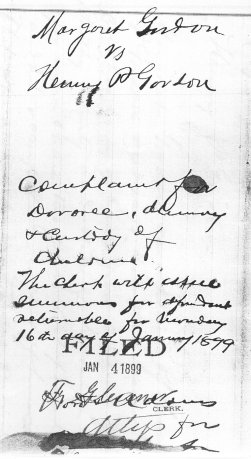 Margaret Gordon
vs
Henry P Gordon
Complaint for
Divorce, alimony
& Custody of
Children.
The Clerk will issue
summons for defendant
returnable for Monday
16th day of January 1899
FILED
JAN 4 1899
CLERK.
attys for